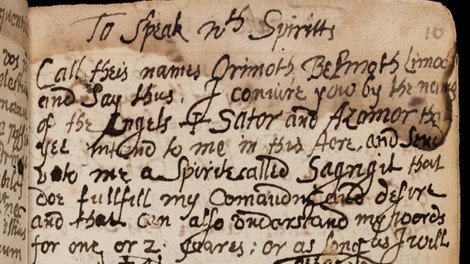 To Speak wth Spiritts
10
Call theis names Orimoth Belmoth Limoc
and Say thus. I coniure yow by the names
of the Angels + Sator and Azamor that
yee intend to me in this Aore, and Send
unto me a Spirite called Sagrigit that
doe fullfill my Comaunding and desire
and that can also understand my words
for one or 2 yuares; or as long as I will